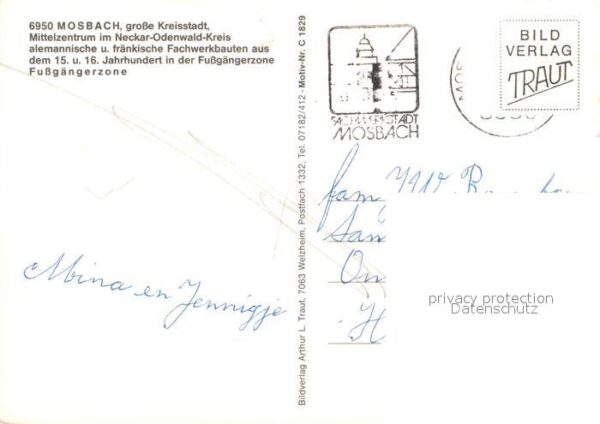 6950 MOSBACH, große Kreisstadt,
Mittelzentrum im Neckar-Odenwald-Kreis
alemannische u. fränkische Fachwerkbauten aus
dem 15. u. 16. Jahrhundert in der Fußgängerzone
Fußgängerzone
Mina en Jennigje
Bildverlag Arthur L. Traut, 7063 Welzheim, Postfach 1332, Tel. 07182/412 - Motiv-Nr. C 1829
FACHWERKSTADT
MOSBACH
MOS
BILD
VERLAG
TRAUT
fam
privacy protection
Datenschutz